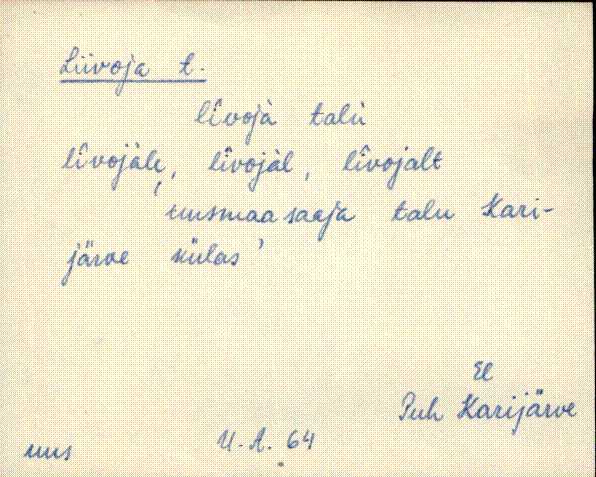 Liivoja t.
lîvojà talù
lîvojàle, lîvojàl, lîvojalt
'uusmaasaaja talu Kari-
järve külas'
El
Puh Karijärve
uus
U. A. 64